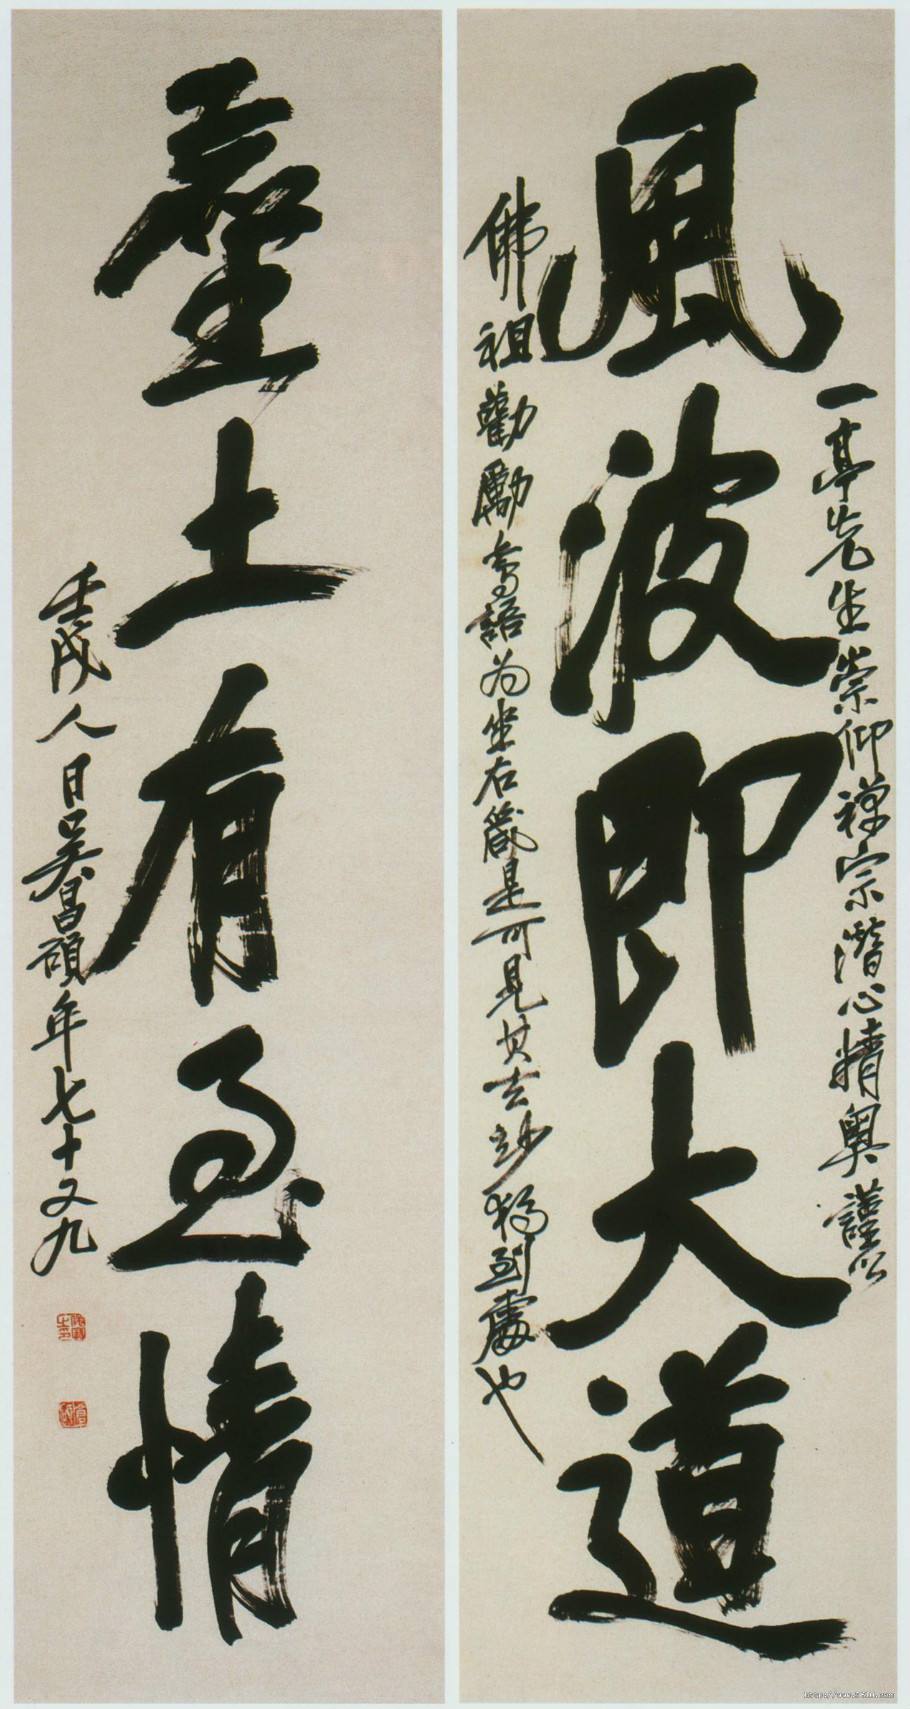 一亭先生崇仰禪宗潛心精奧謹以
風波即大道
佛祖勸勵語為坐右箴是可見其玄妙獨到處也
塵土有至情
壬戌人日吳昌碩年七十又九